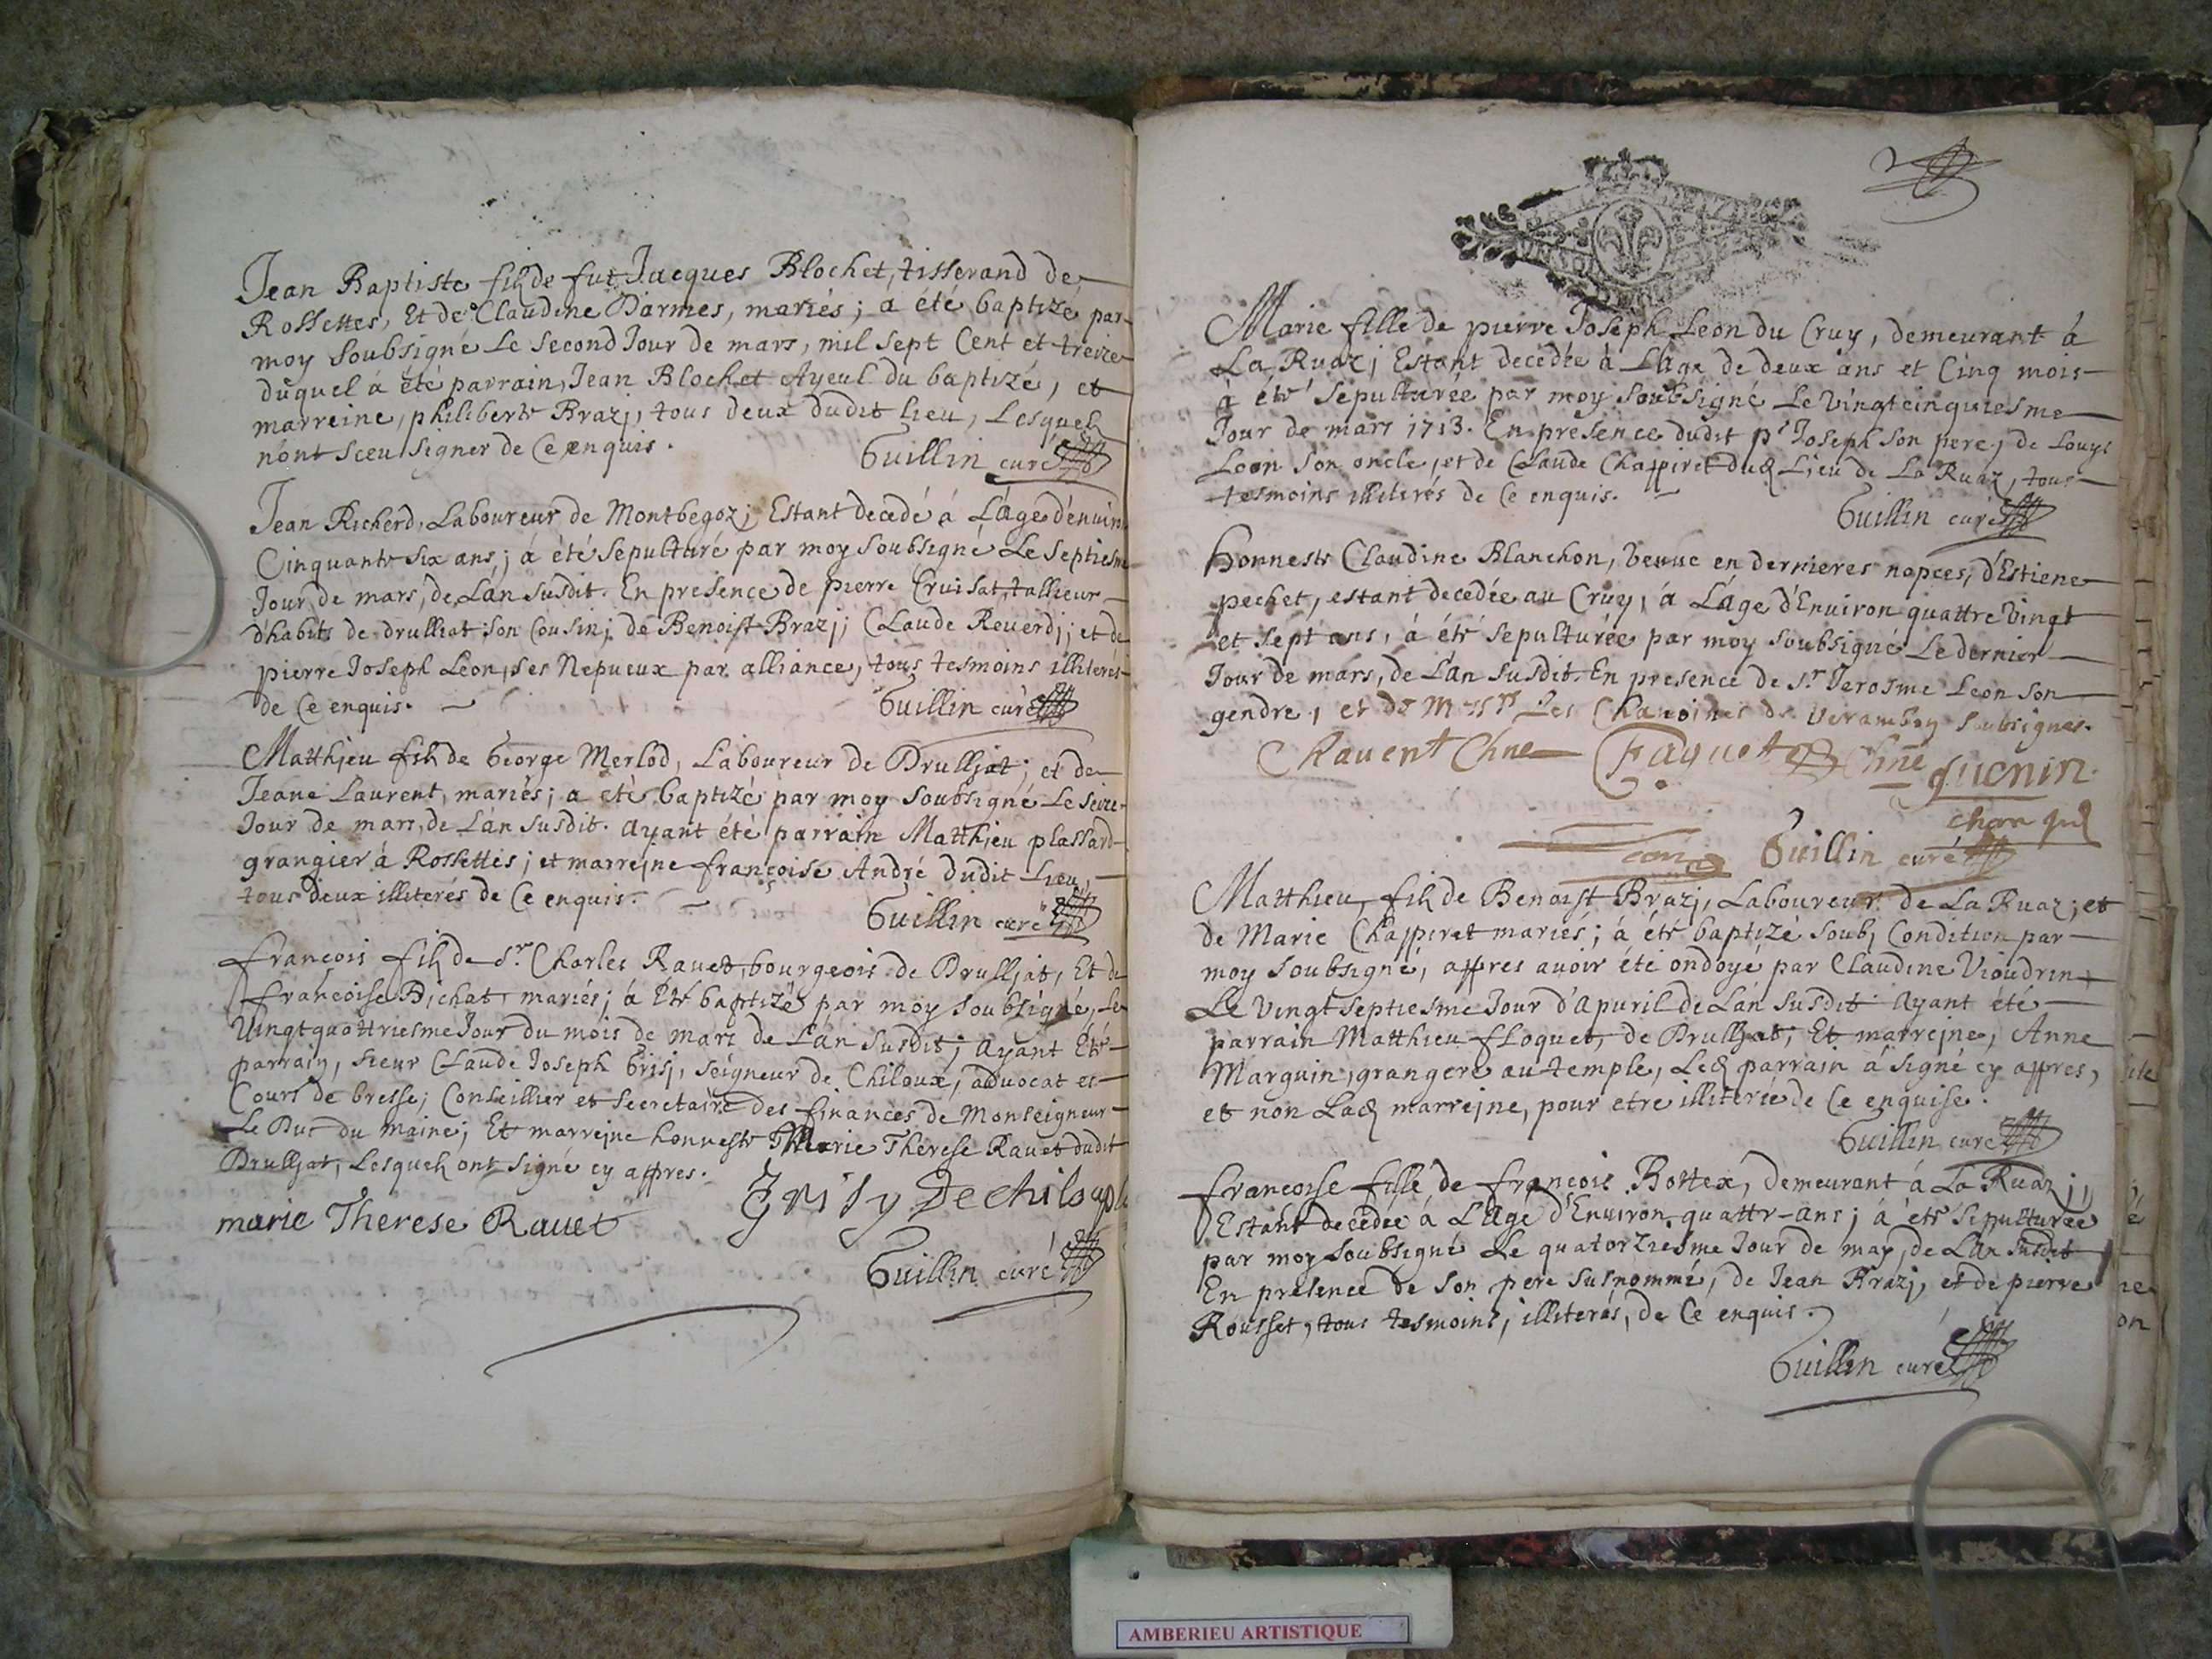 Jean Baptiste fils de fut Jacques Blochet, tisserand de
Rossettes, Et de Claudine Darmes, mariés; a été baptizé par
moy Soubsigné Le Second Jour de mars, mil Sept Cent et treize
duquel à été parrain, Jean Blochet Ayeul du baptizé, et
marreine, philiberte Brazj, tous deux dudit lieu, Lesquels
nónt sceu signer de Ce enquis.
Guillin curé
Jean Richerd, Laboureur de Montbegoz; Estant decedé á Láge dénuiron
Cinquante Six ans,; á été Sepulturé par moy soubsigné Le Septiesme
Jour de mars, de Lán Susdit. En presence de pierre Cruisat, tallieur
dhabits de drulliat son Cousin; de Benoist Brazj; Claude Reverdj; et de
pierre Joseph Léon, ses Nepueux par alliance, tous tesmoins illiterés
de Ce enquis.
Guillin curé
Matthieu fils de George Merlod, Laboureur de Drulljat; et de
Jeane Laurent, mariés; a été baptizé par moy soubsigné Le Seize
Jour de mars, de Lán susdit. ayant été parrain Matthieu plassard
grangier à Rossettes; et marrejne françoise André dudit Lieu,
tous deux illiterés de Ce enquis.
Guillin curé
francois fils de Sr. Charles Ravet, bourgeois de Drulljat, Et de
francoise Bichat, mariés; á été baptizé par moy soubsigné, Le
Vingtquattriesme Jour du mois de mars de Lán susdit; ayant Eté
parrain, sieur Claude Joseph Grisj, Seigneur de Chiloux, advocat et
Cours de bresse; Conseillier et Secretaire des finances de Monseigneur
Le Duc du maine; Et marrejne honneste Marie Therese Ravet dudit
Drulljat, Lesquels ont signé cy apres.
Grisy De chiloup
marie Therese Ravet
Guillin curé
Marie fille de pierre Joseph Leon du Cruy, demeurant á
La Ruaz; Estant decedée à Láge de deux ans et Cinq mois
à été Sepulturée par moy soubsigné Le Vingtcinquiesme
Jour de mars 1713. En presence dudit pe Joseph son pere, de Louys
Leon son oncle, et de Claude Chappiret dud Lieu de La Ruaz, tous
tesmoins illiterés de Ce enquis.
Guillin curé
honneste Claudine Blanchon, Veuue en dernieres nopces, d'Estiene
pechet, estant decedée au Cruy, á Láge d'Environ quattre Vingt
et sept ans, á été sepulturée par moy soubsigné Le dernier
Jour de mars, de Lán susdit. En presence de Sr. Jerosme Leon son
gendre, et de Messrs Les Chanoines de Verambey soubsignes.
Chauent Chne Faguet Chne guenin
Guillin curé
Matthieu, fils de Benoist Brazj, Laboureur de La Ruaz; et
de Marie Chappiret mariés; á été baptizé soubs Condition par
moy soubsigné, appres auoir été ondoyé par Claudine Vioudrin
Le Vingtseptiesme Jour d'apuril de Lán susdit ayant été
parrain Matthieu floquet, de Drulljat, Et marrejne, Anne
Marguin, grangere au temple, Led parrain á signé cy appres,
et non Lad marrejne, pour etre illiterée de Ce enquise.
Guillin curé
francoise fille de françois Bottex, demeurant á La Ruaz;
Estant decedée á Láge d'Environ quattre ans; á été sepulturée
par moy soubsigné Le quatorziesme Jour de may, de Lán susdit
En presence de son pere susnommé, de Jean Brazj, et de pierre
Rousset, tous tesmoins, illiterés, de Ce enquis.
Guillin curé
AMBERIEU ARTISTIQUE